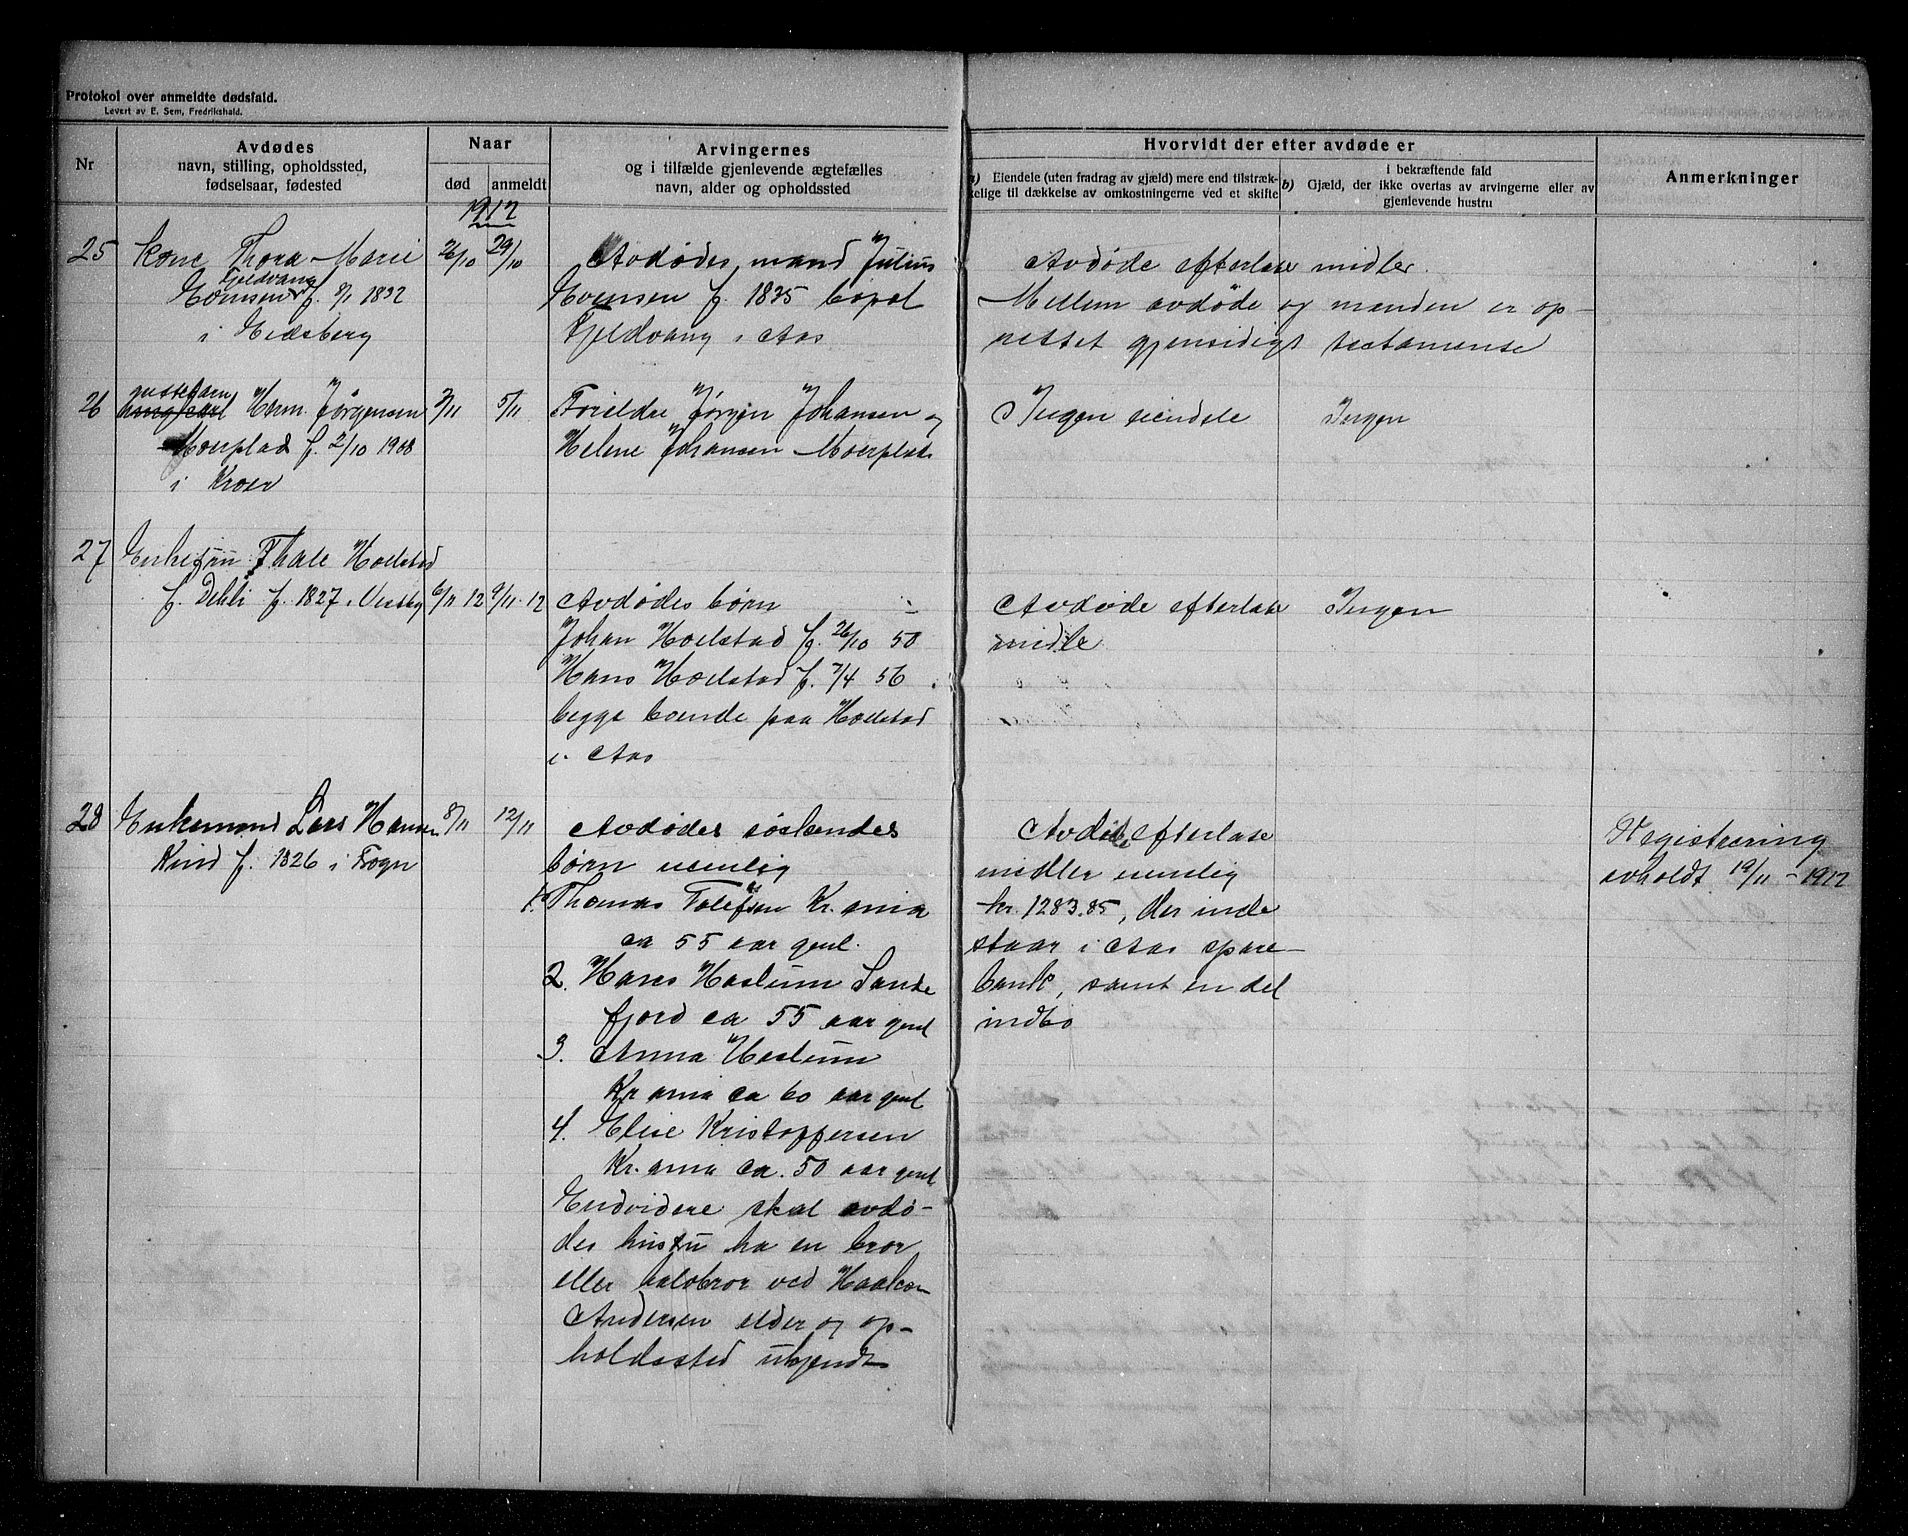 Protokol over anmeldte dødsfald.
Levert av E. Sem, Fredrikshald.
Nr
Avdødes
navn, stilling, opholdssted,
fødselsaar, fødested
Naar
død
anmeldt
Arvingernes
og i tilfælde gjenlevende ægtefælles
navn, alder og opholdssted
Hvorvidt der efter avdøde er
a) Eiendele (uten fradrag av gjæld) mere end tilstræk-
kelige til dækkelse av omkostningerne ved et skifte
i bekræftende fald
b) Gjæld, der ikke overtas av arvingerne eller av
gjenlevende hustru
Anmerkninger
1912
25 Kone Thora Marie 26/10 29/10
Fjeldvang
Evensen f. 8/1 1832
i Eidsberg
Avdødes mand Julius
Evensen f. 1835 bopel
Fjeldvang i Aas
Avdøde efterlate midler.
Mellem avdøde og manden er op-
rettet gjensidigt testamente
26 Herm. Jørgensen 2/11 5/11
Moerplad f. 2/10 1908
i Kroer
Foreldre Jørgen Johansen og
Helene Johansen Moerplads
Ingen eiendele
Ingen
27 Enkefru Thale Holstad
f. Dehli f. 1827 i Vestby 6/11 12 9/11 12
Avdødes børn
Johan Holstad f. 26/10 50
Hans Holstad f. 7/4 56
begge boende paa Holstad
i Aas
Avdøde efterlate
midle
Ingen
28 Enkemand Lars Hansen 8/11 12/11
Kind f. 1826 i Frogn
Avdødes søskendes
børn nemlig
1. Thomas Tolefsen Kr.ania
ca 55 aar gml.
2. Hans Haslum Sande
fjord ca 55 aar gml
3. Anna Haslum
Kr ania ca 60 aar gml
4. Elise Kristoffersen
Kr. ania ca. 50 aar gml
Endvidere skal avdø-
des hustru ha en bror
eller halvbror ved Haakon
Andersen alder og op-
holdssted ukjendt
Avdøde efterlate
midler nemlig
kr. 1283.85, der inde
staar i Aas spare-
bank, samt en del
indbo
Registrering
avholdt 19/11-1912